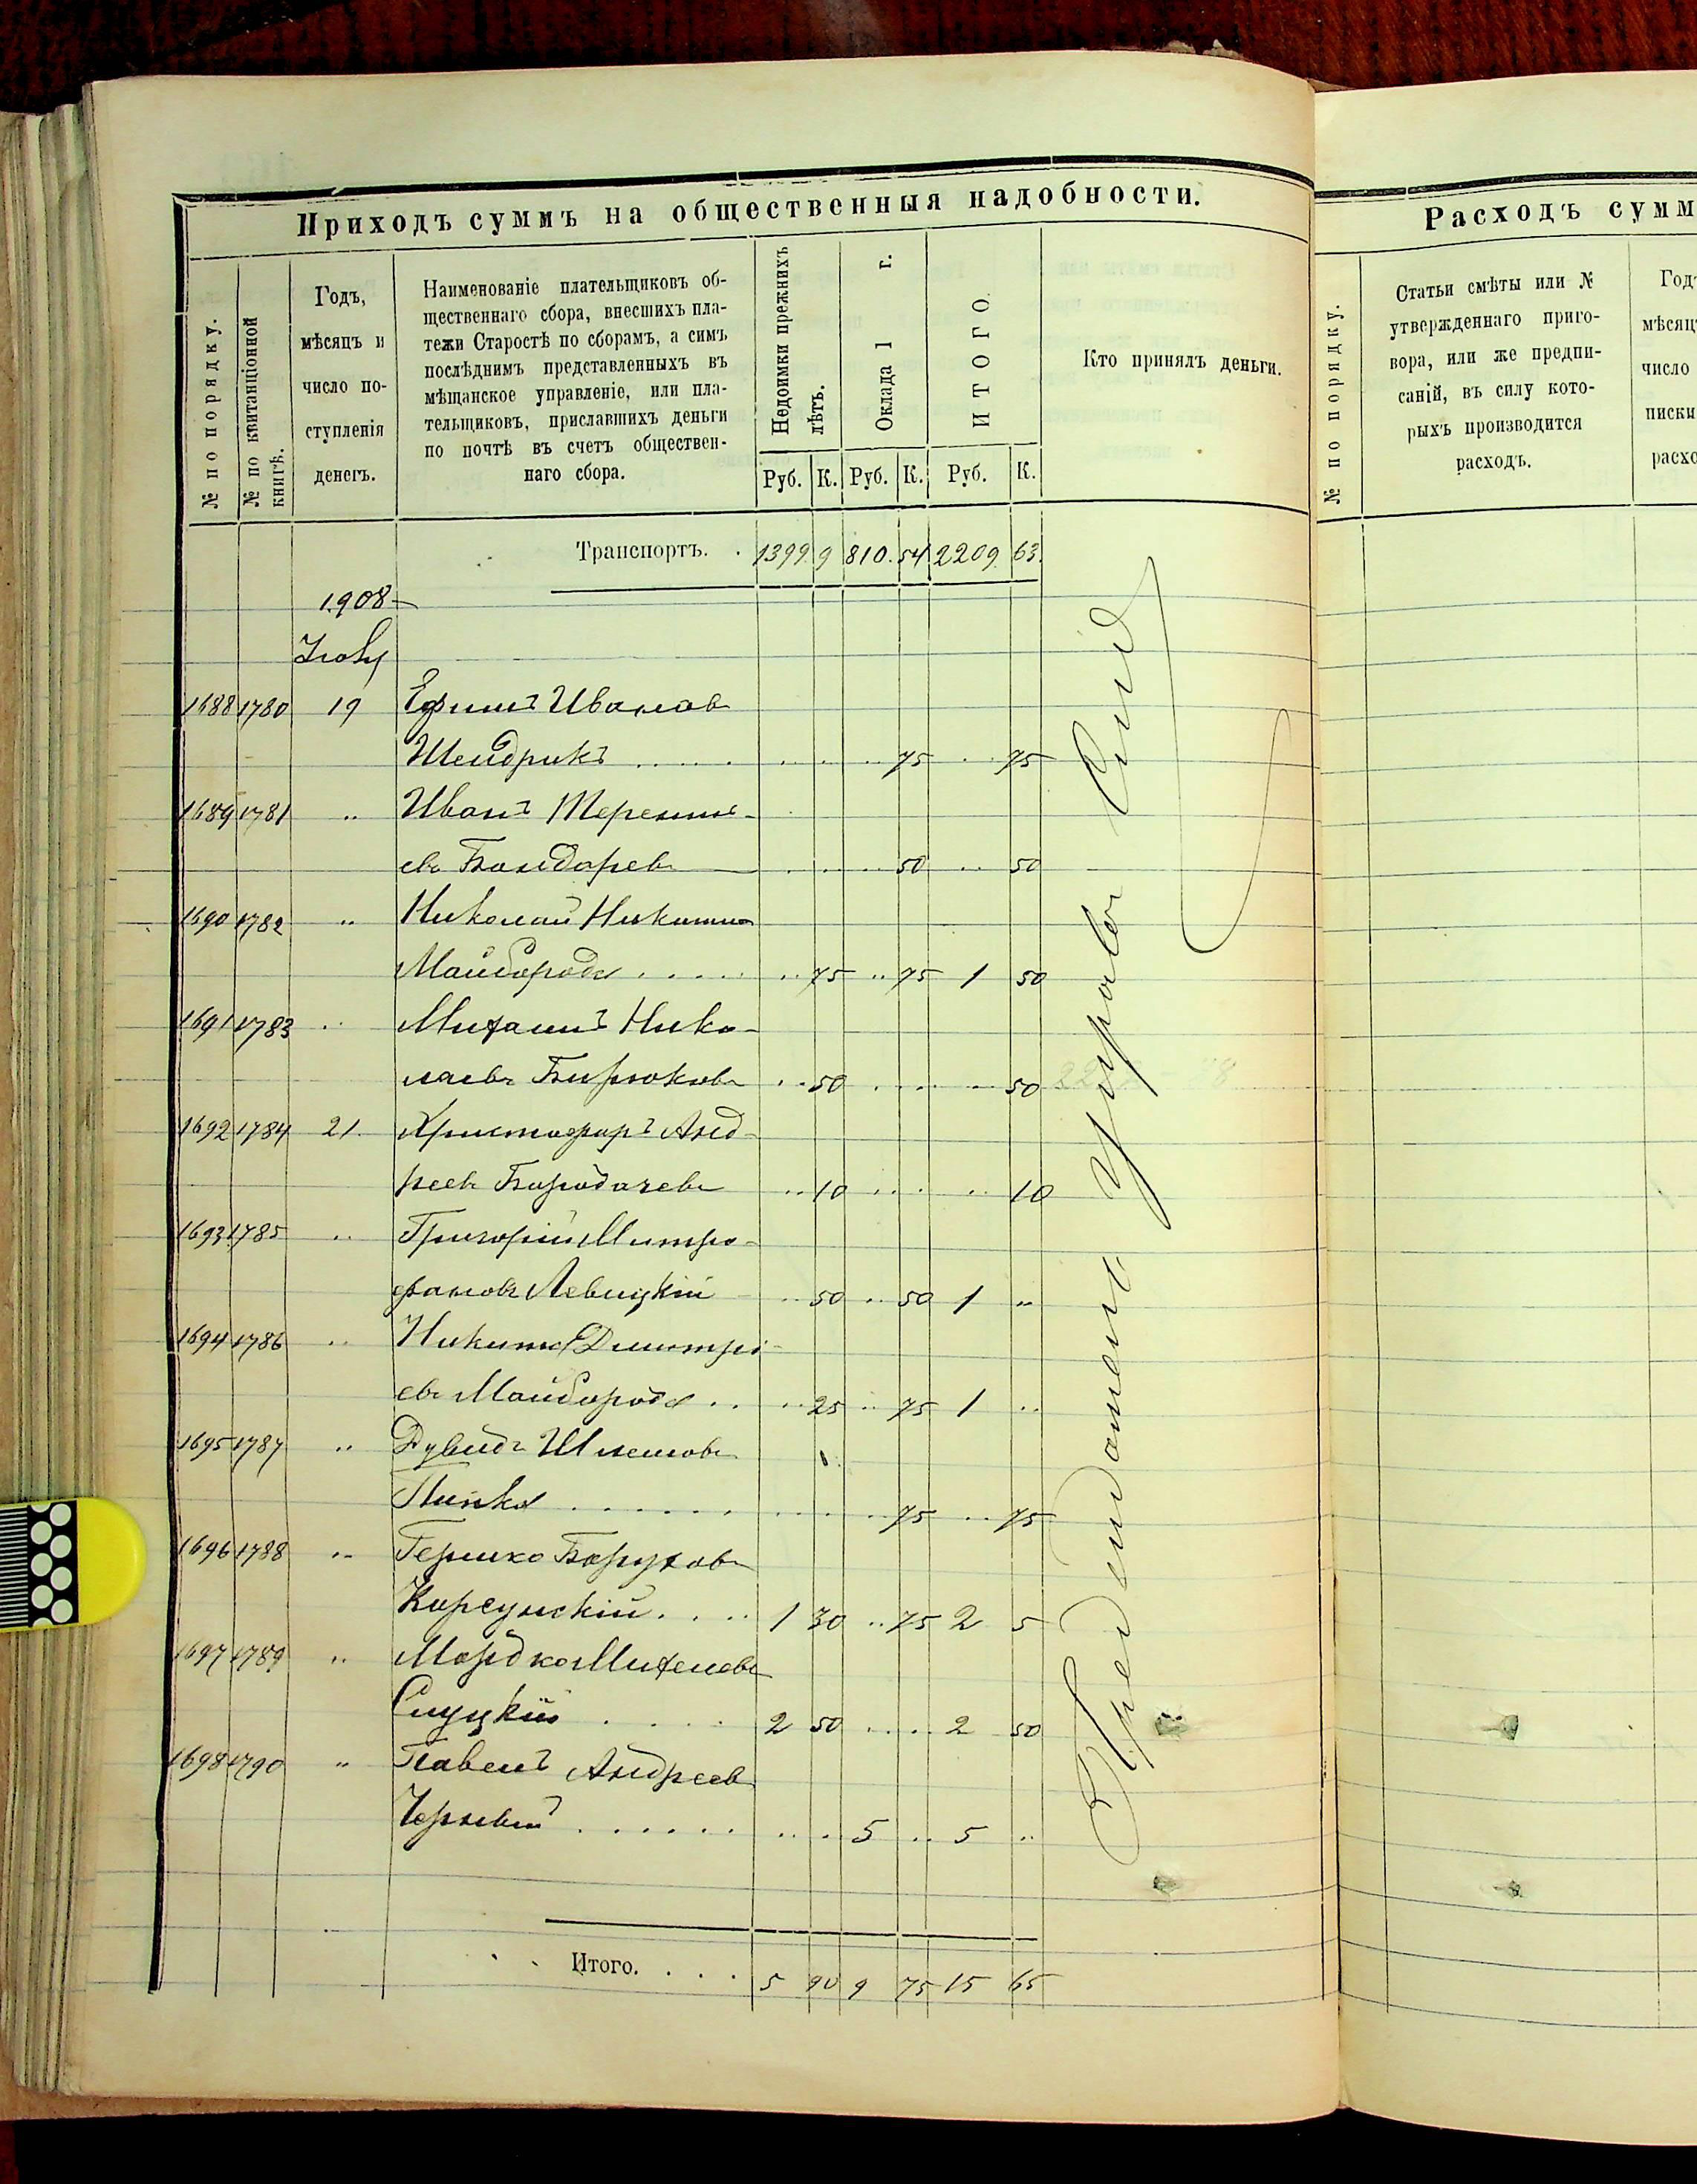 Приходъ суммъ на общественныя надобности.
№ по порядку.
№ по квитанціонной книгѣ.
Годъ,
мѣсяцъ и
число по-
ступленія
денегъ.
Наименованіе плательщиковъ об-
щественнаго сбора, внесшихъ пла-
тежи Старостѣ по сборамъ, а симъ
послѣднимъ представленныхъ въ
мѣщанское управленіе, или пла-
тельщиковъ, приславшихъ деньги
по почтѣ въ счетъ обществен-
наго сбора.
Недоимки прежнихъ
лѣтъ.
Оклада 1 г.
ИТОГО.
Кто принялъ деньги.
Руб. К. Руб. К. Руб. К.
Транспортъ. 1399 9 810 54 2209 63
1908
Іюль
1688 1780 19 Ефимъ Иванов
Шендрикъ 75 75
1689 1781 " Иванъ Теренть-
евъ Бондаревъ 50 50
1690 1782 " Николай Никитин
Майборода 75 75 1 50
1691 1783 " Михаилъ Нико-
лаевъ Бирюковъ 50 50
1692 1784 21 Христофоръ Анд-
реевъ Бородачевъ 10 10
1693 1785 " Григорій Митро-
фановъ Левицкій 50 50 1 "
1694 1786 " Никита Дмитрі-
евъ Майборода 25 75 1 "
1695 1787 " Дувидъ Шлемовъ
75 75
1696 1788 " Гершко Боруховъ
Корсунскій 1 30 75 2 5
1697 1789 " Мордко Михелевъ
Слуцкій 2 50 2 50
1698 1790 " Павелъ Андреев
5 " 5 "
Итого. 5 90 9 75 15 65
Расходъ сумм
№ по порядку.
Статьи смѣты или №
утвержденнаго приго-
вора, или же предпи-
саній, въ силу кото-
рыхъ производится
расходъ.
Год
мѣсяц
число
писки
расхо